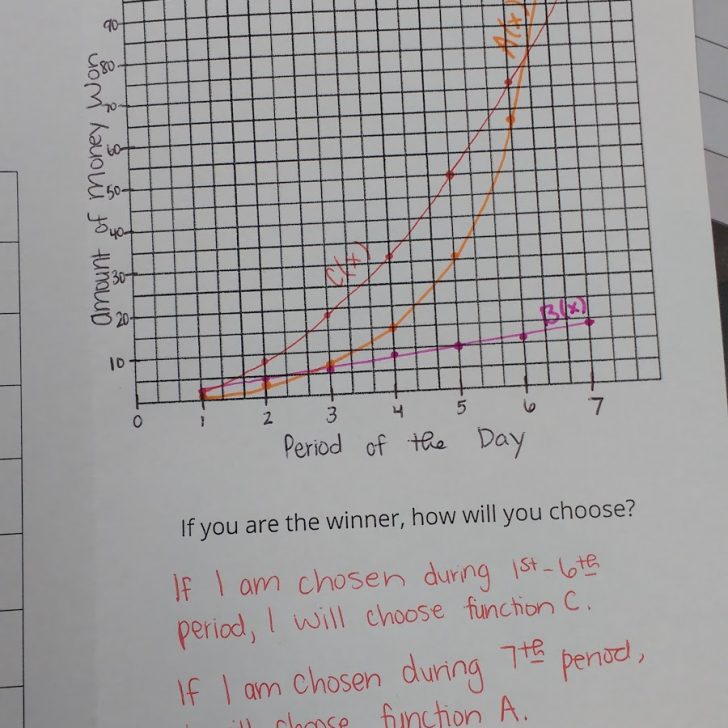 90
80
70
60
50
40
30
20
10
Amount of money Won
A(x)
C(x)
B(x)
0 1 2 3 4 5 6 7
Period of the Day
If you are the winner, how will you choose?
If I am chosen during 1st-6th
period, I will choose function C.
If I am chosen during 7th period,
I will choose function A.